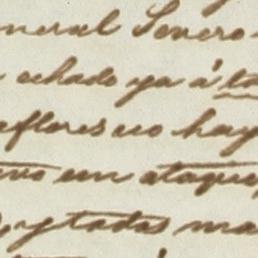 neral Severo
echado ya á
eflores no hay
ivo un ataque
, y todas ma